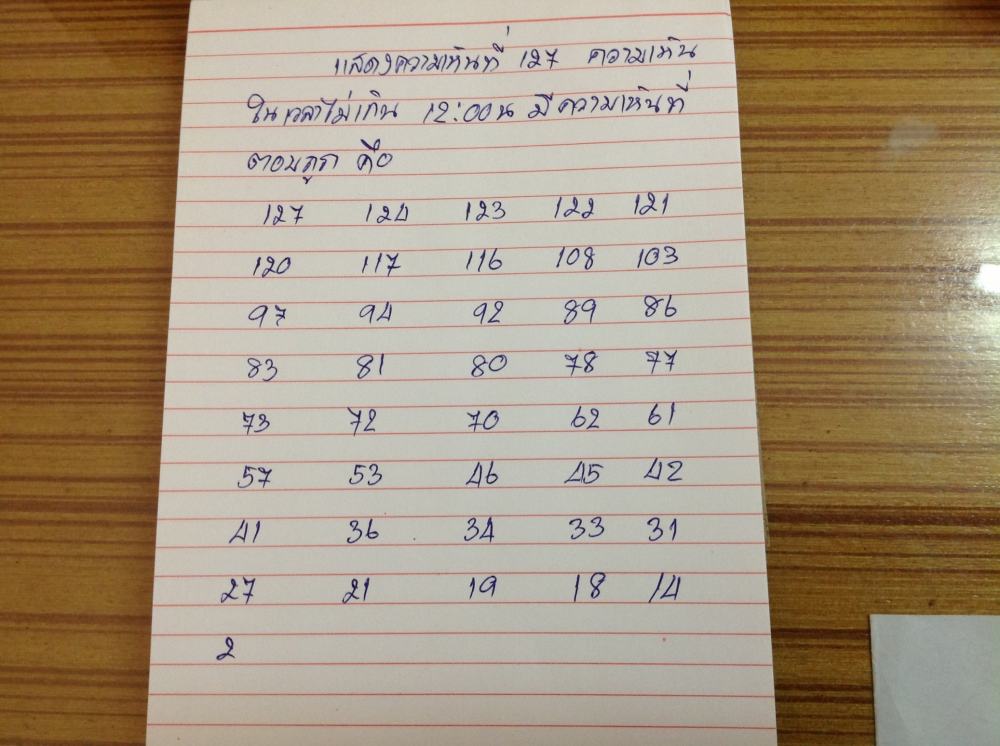 แสดงความเห็นที่ 127 ความเห็น
ในเวลาไม่เกิน 12:00 น มีความเห็นที่
ตอบถูก คือ
127 124 123 122 121
120 117 116 108 103
97 94 92 89 86
83 81 80 78 77
73 72 70 62 61
57 53 46 45 42
41 36 34 33 31
27 21 19 18 14
2